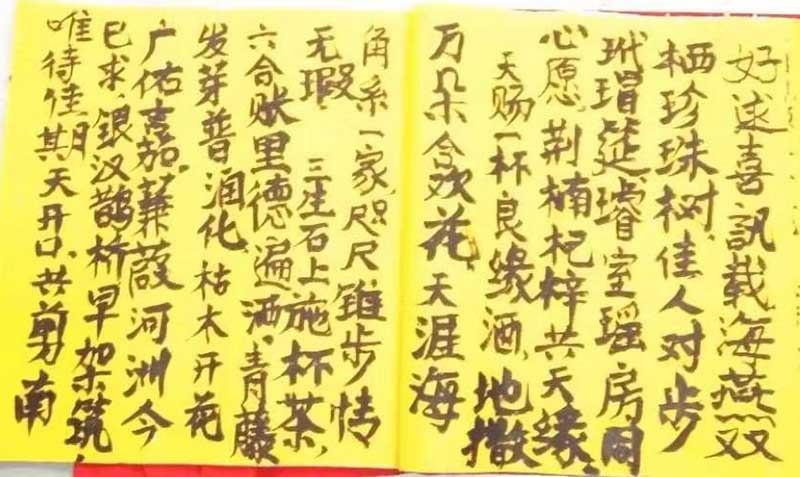 好逑喜訊载海燕双
栖珍珠树佳人对步
玳瑁筵璿室瑶房同
心愿荆楠杞梓共天缘
天赐一杯良缘酒地撒
万朵合欢花天涯海
角系一家咫尺雖步情
无瑕三座石上施杯茶
六合账里德遍洒青藤
发芽普润化枯木开花
广佑言茄蒹葭河洲今
已求银汉鹊桥早架筑
唯待佳期天开口共剪南